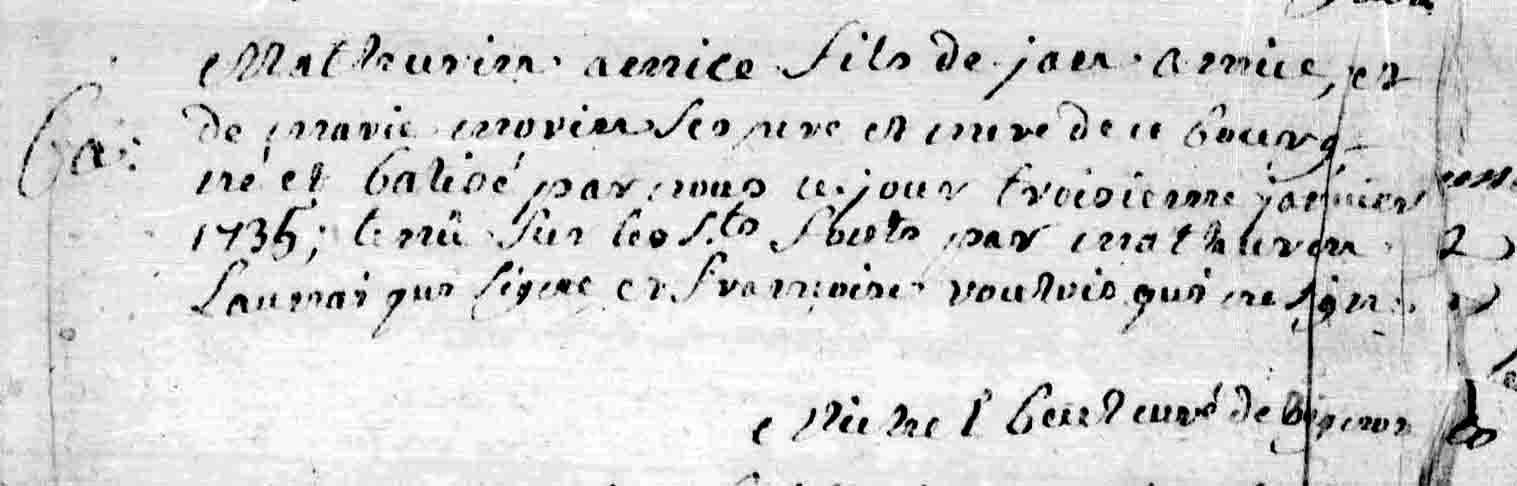 Mathurin amice fils de jan amice, et
Ba: de marie morin ses pere et mere de ce bourg
né et batisé par nous ce jour troisieme janvier
1735; tenû sur les s.ts fonts par mathurin
Launai qui signe, et françoise qui ne signe
Michel curé de